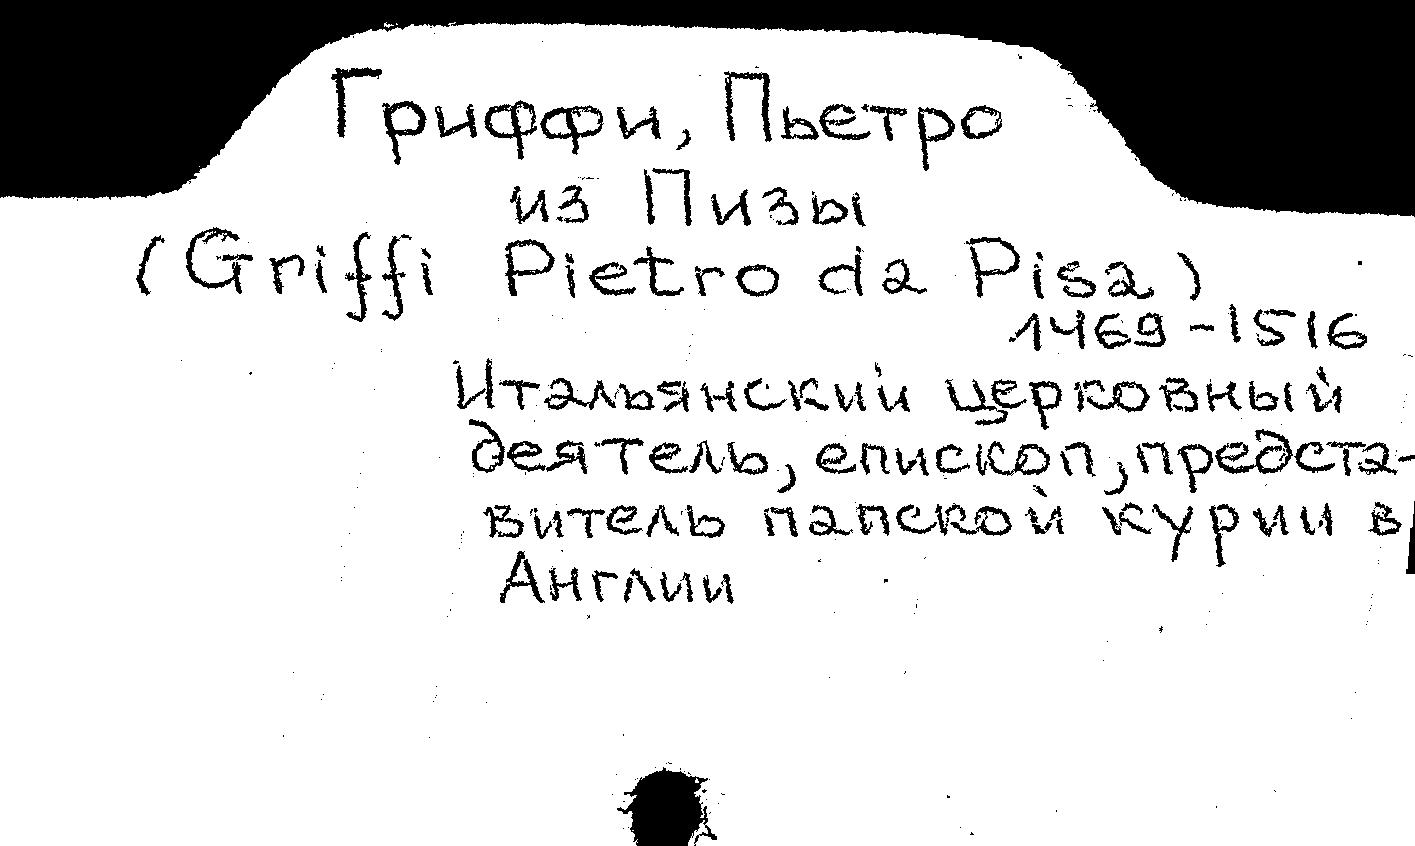 Гриффи, Пьетро
из Пизы
(Griffi Pietro da Pisa)
1469-1516
Итальянский церковный
деятель, епископ, предста-
витель папской курии в
Англии